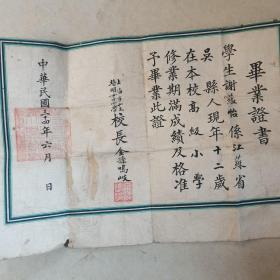 畢業證書
學生謝蘊怡係江蘇省
吳縣人現年十二歲
在本校高級小學
修業期滿成績及格准
予畢業此證
校長金鳴岐
中華民國三十四年六月 日